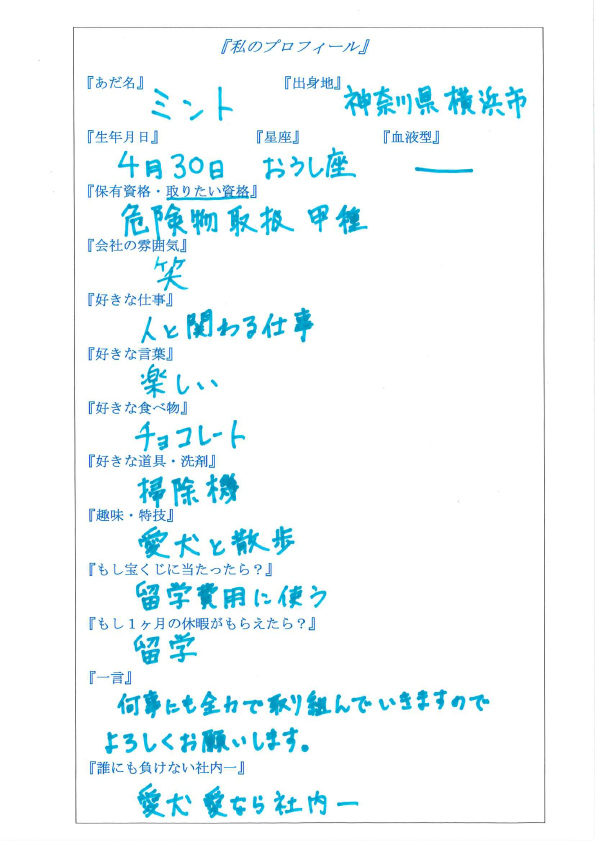 『私のプロフィール』
『あだ名』 『出身地』
ミント 神奈川県 横浜市
『生年月日』 『星座』 『血液型』
4月30日 おうし座 ー
『保有資格・取りたい資格』
危険物取扱 甲種
『会社の雰囲気』
笑
『好きな仕事』
人と関わる仕事
『好きな言葉』
楽しい
『好きな食べ物』
チョコレート
『好きな道具・洗剤』
掃除機
『趣味・特技』
愛犬と散歩
『もし宝くじに当たったら？』
留学費用に使う
『もし１ヶ月の休暇がもらえたら？』
留学
『一言』
何事にも全力で取り組んでいきますので
よろしくお願いします。
『誰にも負けない社内一』
愛犬愛なら社内一